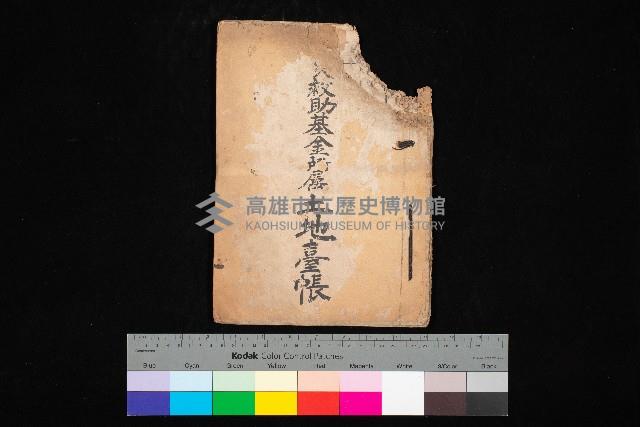 救助基金所屬土地臺帳
高雄市立歷史博物館
KAOHSIUNG MUSEUM OF HISTORY
Kodak Color Control Patches
Blue Cyan Green Yellow Red Magenta White 3/Color Black